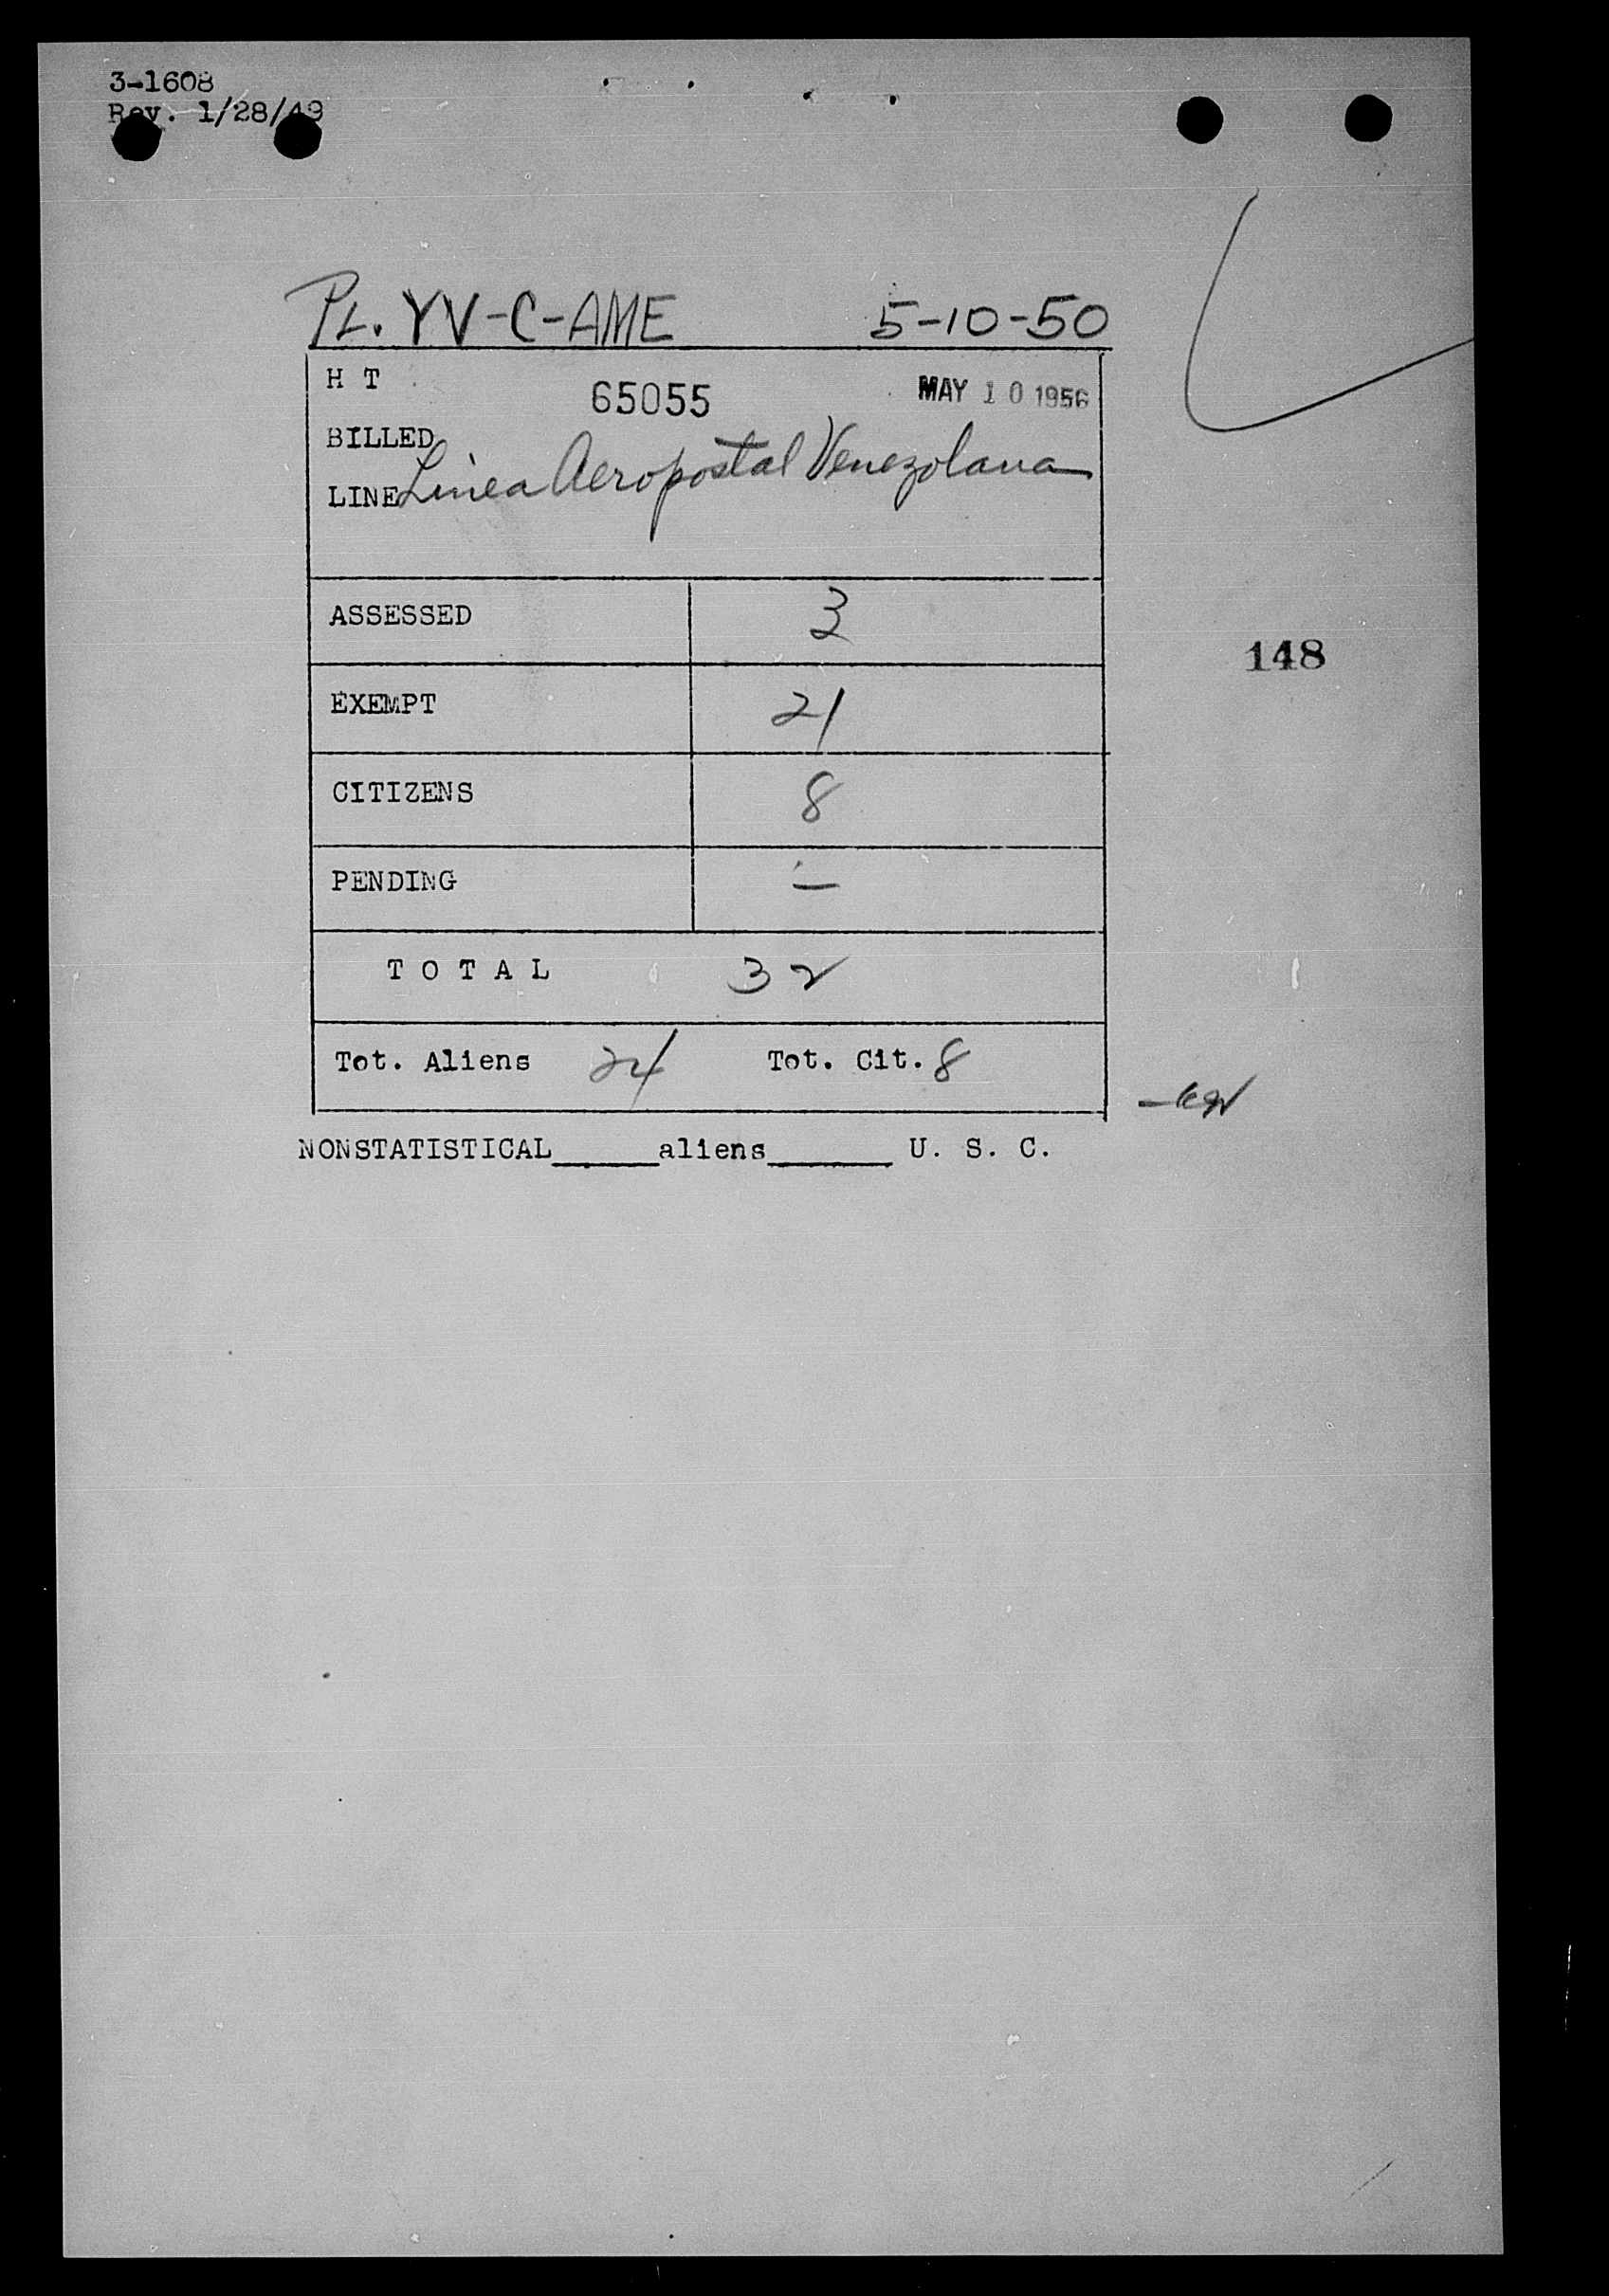 3-1608
Rev. 1/28/49
PL. YV-C-AME 5-10-50
H T 65055 MAY 10 1950
BILLED
LINE Linea Aeropostal Venezolana
ASSESSED 3
148
EXEMPT 21
CITIZENS 8
PENDING –
T O T A L 32
Tot. Aliens 24 Tot. Cit. 8
NONSTATISTICAL______aliens_______ U. S. C.